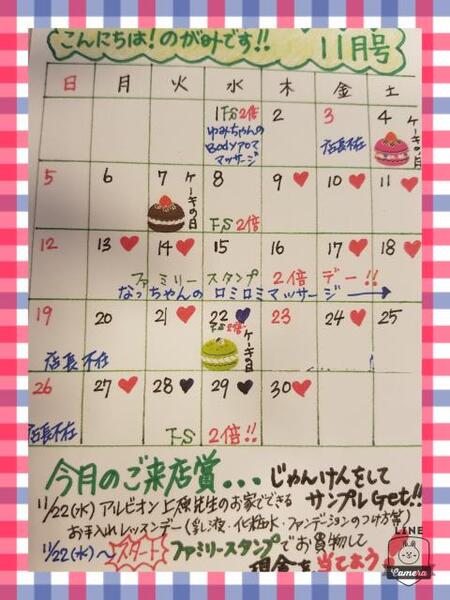 こんにちは!のがみです!!
11月号
日 月 火 水 木 金 土
1 FS2倍 2 3 4
ゆみちゃんの
Bodyアロマ
マッサージ
店長不在
ケーキの日
5 6 7 8 9 10 11
ケーキの日
FS 2倍
12 13 14 15 16 17 18
ファミリースタンプ 2倍デー!!
なっちゃんのロミロミマッサージ
19 20 21 22 23 24 25
FS 2倍
ケーキの日
店長不在
26 27 28 29 30
店長不在
FS 2倍!!
今月のご来店賞...じゃんけんをして
サンプルGet!!
11/22(水)アルビオン上原先生のお家でできる
お手入れレッスンデー(乳液・化粧水・ファンデーションのつけ方等)
11/22(水)〜スタート ファミリースタンプでお買物して
現金を当てよう
LINE
Camera